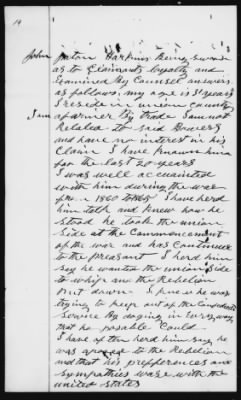 14
John paton Harkins Being sworn
as to Claimants loyalty and
Examined By Counsel answers
as follows, my age is 31 years
I reside in union county
I am a farmer By trade I am not
Related to said Bowers
and have no interest in his
Claim I have known him
for the last 20 years
I was well accuainted
with him during the war
from 1860 to 1865 I have herd
him talk and knew how he
stood he took the union
side at the Commencement
of the war and has Continued
to the preasant I herd him
say he wanted the union side
to whip and the Rebelion
put down I knew he was
trying to keep out of the Confederate
Service By doging in Every way
that he posable Could
I have often herd him say he
was oposed to the Rebelion
and that his prefferences and
sympathies ware with the
united states